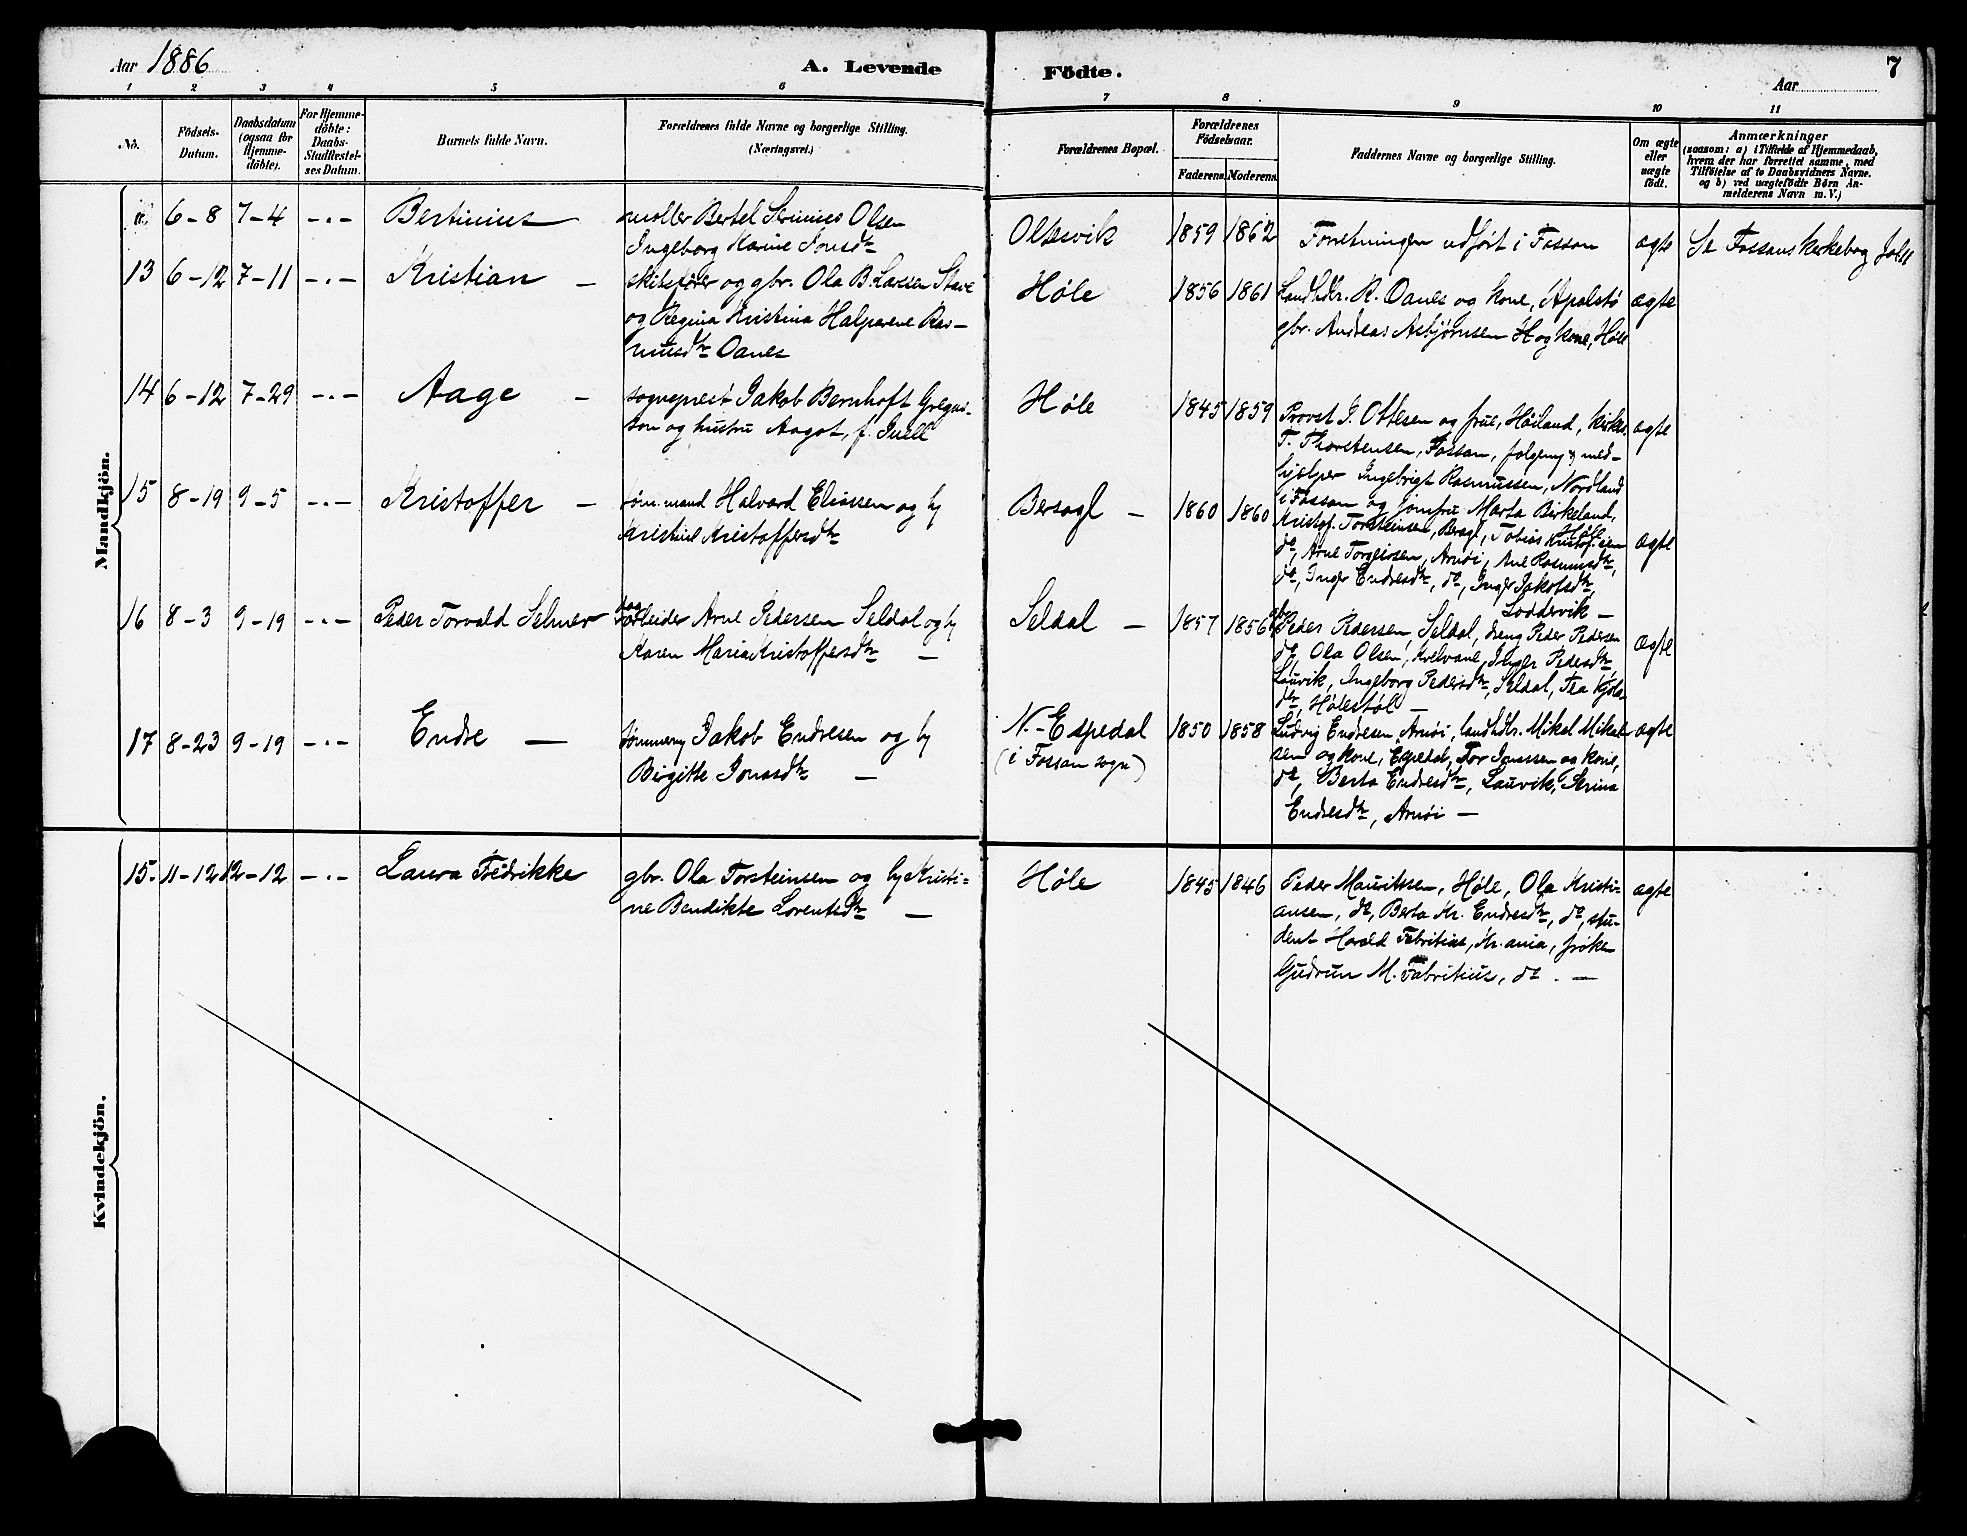 Aar 1886 A. Levende Födte. Aar 7
1 2 3 4 5 6 7 8 9 10 11
No. Födsels-Datum. Daabsdatum (ogsaa for Hjemme-döbte). For Hjemme-döbte: Daabs-Stadfæstel-ses Datum. Barnets fulde Navn. Forældrenes fulde Navne og borgerlige Stilling. (Næringsvei.) Forældrenes Bopæl. Forældrenes Födselsaar. Faderens Moderens Faddernes Navne og borgerlige Stilling. Om ægte eller uægte födt. Anmærkninger (saasom: a) i Tilfælde af Hjemmedaab, hvem der har forrettet samme, med Tilföielse af to Daabsvidners Navne. og b) ved uægtefödte Börn An-melderens Navn m. V.)
Mandkjön.
6-8 7-4 -"- Bertinius møller Bertel Serinius Olsen
Ingeborg Karine Jonsdtr
Oltesvik 1859 1862 Forretningen udført i Fossan ægte Se Fossans kirkebog
13 6-12 7-11 -"- Kristian - skibsfører og gbr. Ola B. Larsen Stave
og Regina Kristina Halparene Ras-
musdtr Oanes
Høle 1856 1861 Landhdlr. R. Oanes og kone, Apalstø ægte
gbr. Andreas Asbjørnsen H og kone, Høle
14 6-12 7-29 -"- Aage - sognepræst Jakob Bernhoft Gregus-
son og hustru Aagot, f. Juell
Høle 1845 1859 Provst J. Ottesen og frue, Høiland, kirkes. ægte
T. Thorstensen, Fossan, med-
hjælper Ingebrigt Rasmussen, Nordland
i Fossan og jomfru Marta Birkeland,
Høle
15 8-19 9-5 -"- Kristoffer - tøm.mand Halvard Eliassen og h
Kristine Kristoffersdtr
Bersagl - 1860 1860 Kristof. Torsteinsen, Bersagl, Tobias ægte
do, Arne Torgeirsen, Arnøi, Ane Rasmusdtr,
do, Inger Endresdtr, do, Inger Jakobsdtr,
Loddervik -
16 8-3 9-19 -"- Peder Torvald Selmer dagarbeider Arne Pedersen Seldal og h
Karen Maria Kristoffersdtr -
Seldal - 1857 1856 gbr Peder Pedersen, Seldal, dreng Peder Pedersen ægte
do, Ola Olsen, Kvelvane, Inger Pedersdtr,
Lauvik, Ingeborg Pedersdtr, Seldal, Tea
Hølestøl -
17 8-23 9-19 -"- Endre - tømmerm Jakob Endresen og h
Birgitte Jonasdtr -
N.-Espedal 1850 1858 Ludvig Endresen, Arnøi, landhdlr. Mikal Mikal- ægte
(i Fossan sogn)
sen og kone, Espedal, Tor Jonassen og kone,
do, Berta Endresdtr, Lauvik, Serina
Endresdtr, Arnøi -
Kvindekjön.
15. 11-12 12-12 -"- Laura Fredrikke gbr. Ola Torsteinsen og h Kristi-
ne Bendikte Lorentsdtr -
Høle 1845 1846 Peder Mauritssen, Høle, Ola Kristi- ægte
ansen, do, Berta Kr. Endresdtr, do, stu-
dent Harald Fabritius, Kr.ania, frøken
Gudrun M. Fabritius, do. -